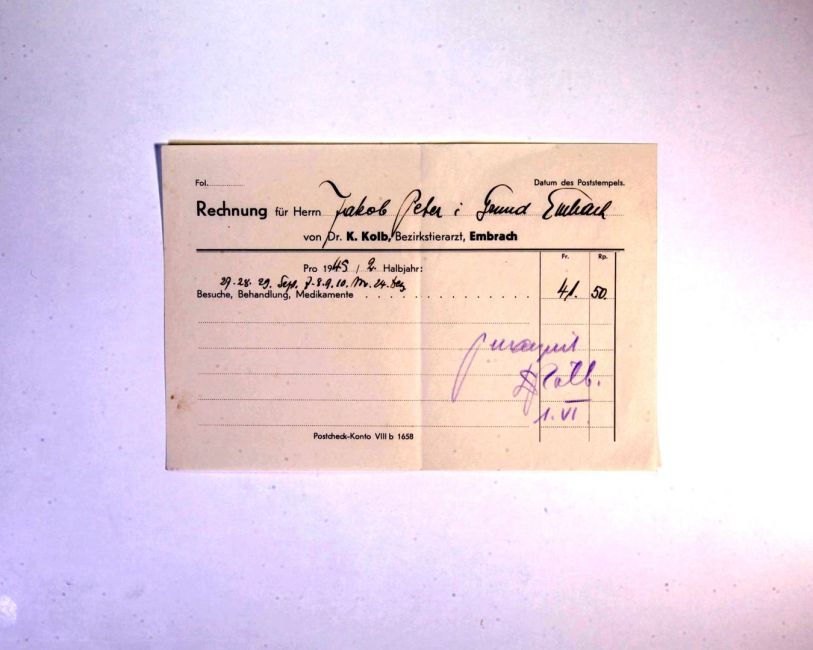 Fol.
Datum des Poststempels.
Rechnung für Herrn Jakob Peter i Grund Embrach
von Dr. K. Kolb, Bezirkstierarzt, Embrach
Fr. Rp.
Pro 1945 / 2. Halbjahr:
28. 29. Sep. 7. 8. 9. 10. 24. Dez
Besuche, Behandlung, Medikamente 41. 50.
Kolb.
1. VI
Postcheck-Konto VIII b 1658